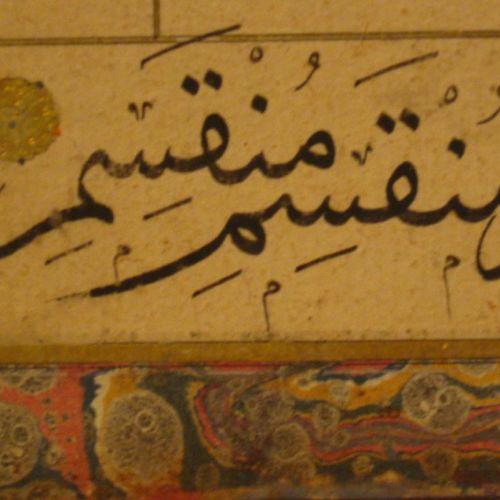 مُنْقَسِمِ مُنْقَسِمِ